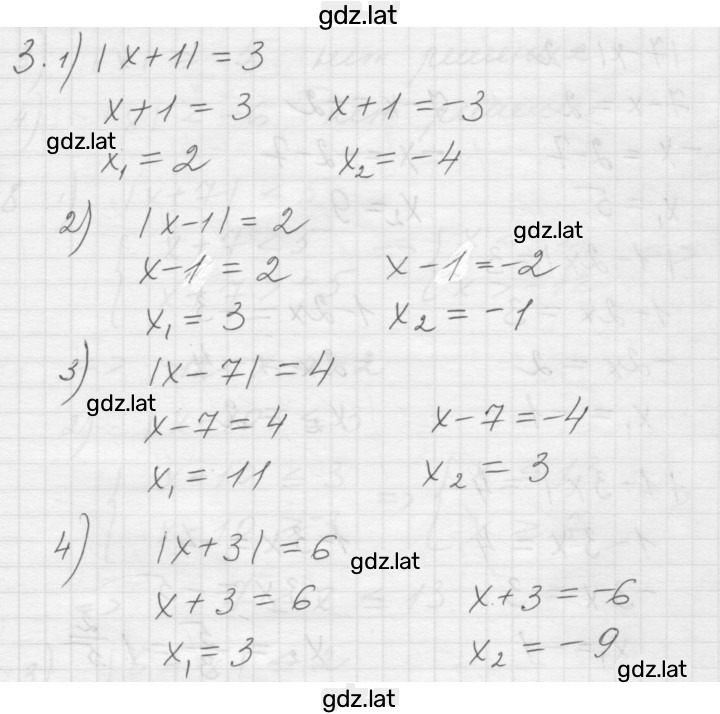 gdz.lat
3. 1) |x+1| = 3
x+1 = 3 x+1 = -3
gdz.lat
x₁ = 2 x₂ = -4
2) |x-1| = 2
gdz.lat
x-1 = 2 x-1 = -2
x₁ = 3 x₂ = -1
3) |x-7| = 4
gdz.lat
x-7 = 4 x-7 = -4
x₁ = 11 x₂ = 3
4) |x+3| = 6
gdz.lat
x+3 = 6 x+3 = -6
x₁ = 3 x₂ = -9
gdz.lat
gdz.lat